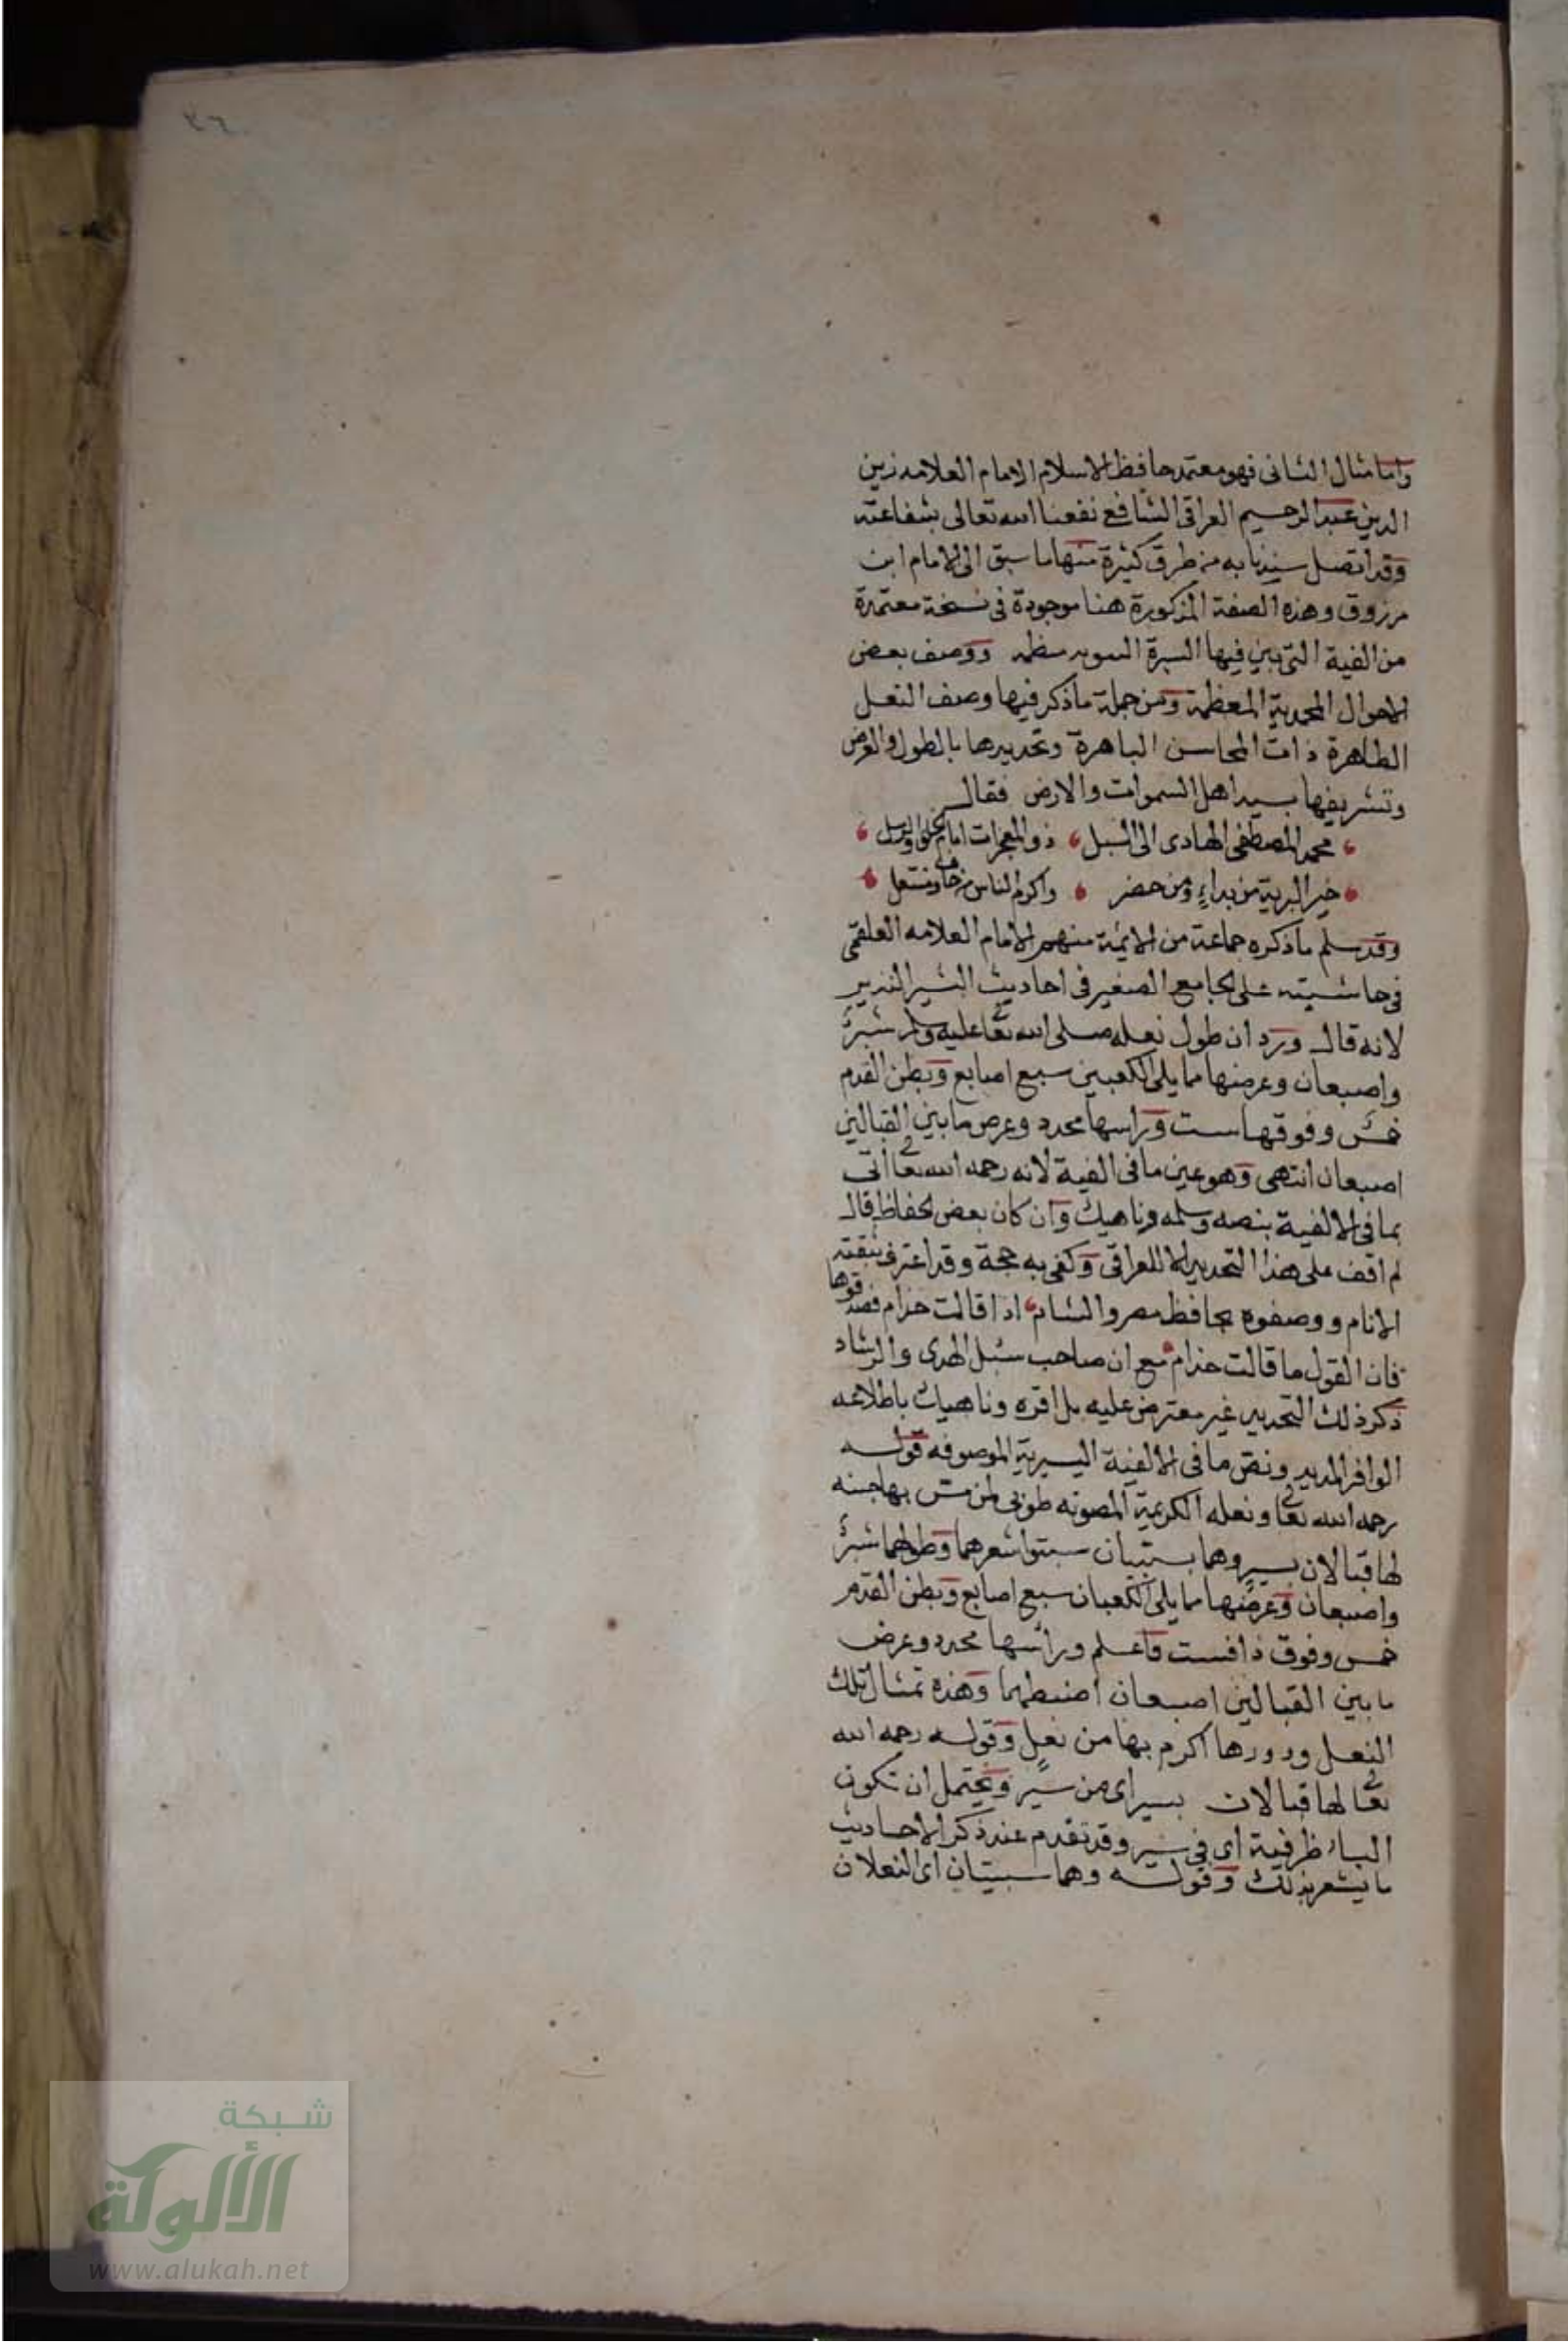 ٢٦
وأما مثال الثانى فهو معتمد حافظ الاسلام الامام العلامه زين
الدين عبد الرحيم العراقى الشافع نفعنا الله تعالى بشفاعته
وقد اتصل سندنا به من طرق كثيرة منها ما سبق الى الامام ابن
مرزوق وهذه الصفة المذكورة هنا موجودة فى نسخة معتمدة
من الفية التى بين فيها السيرة ووصف بعض
الاحوال المحمدية المعظمة ومن جملة ما ذكر فيها وصف النعل
الطاهرة ذات المحاسن الباهرة وتحديدها بالطول والعرض
وتشريفها بسيد اهل السموات والارض فقال
محمد المصطفى الهادى الى السبل ذو المعجزات امام الخلق والرسل
خير البرية من بداء ومن حضر واكرم الناس من حاف ومنتعل
وقد سلم ما ذكره جماعة من الائمة منهم الامام العلامه العلقمى
فى حاشيته على الجامع الصغير فى احاديث البشير النذير
لانه قال ورد ان طول نعله صلى الله تعا عليه وسلم شبر
واصبعان وعرضها مما يلى الكعبين سبع اصابع وبطن القدم
خمس وفوقها ست وراسها محدد وعرض ما بين القبالين
اصبعان انتهى وهو عين ما فى الفية لانه رحمه الله تعا اتى
بما فى الالفية بنصه وسلمه وناهيك وان كان بعض الحفاظ قال
لم اقف على هذا التحديد الا للعراقى وكفى به حجة وقد اعترف بثقته
الانام ووصفوه بحافظ مصر والشام اذا قالت حذام فصدقوها
فان القول ما قالت حذام مع ان صاحب سبل الهدى والرشاد
ذكر ذلك التحديد غير معترض عليه بل اقره وناهيك باطلاعه
الوافر المديد ونص ما فى الالفية السيرية الموصوفه قوله
رحمه الله تعا ونعله الكريمة المصونه طوبى لمن مس بها جبينه
لها قبالان بسير وهما سبتيان سبتوا شعرهما وطولهما شبر
واصبعان وعرضها مما يلى الكعبان سبع اصابع وبطن القدم
خمس وفوق ذا فست فاعلم وراسها محدد وعرض
ما بين القبالين اصبعان اضبطهما وهذه تمثال تلك
النعل ودورها اكرم بها من نعل وقوله رحمه الله
تعا لها قبالان بسير اى من سير ويحتمل ان تكون
الباء ظرفية اى فى سير وقد تقدم عند ذكر الاحاديث
ما يشعر بذلك وقوله وهما سبتيان اى النعلان
شبكة
الألوكة
www.alukah.net